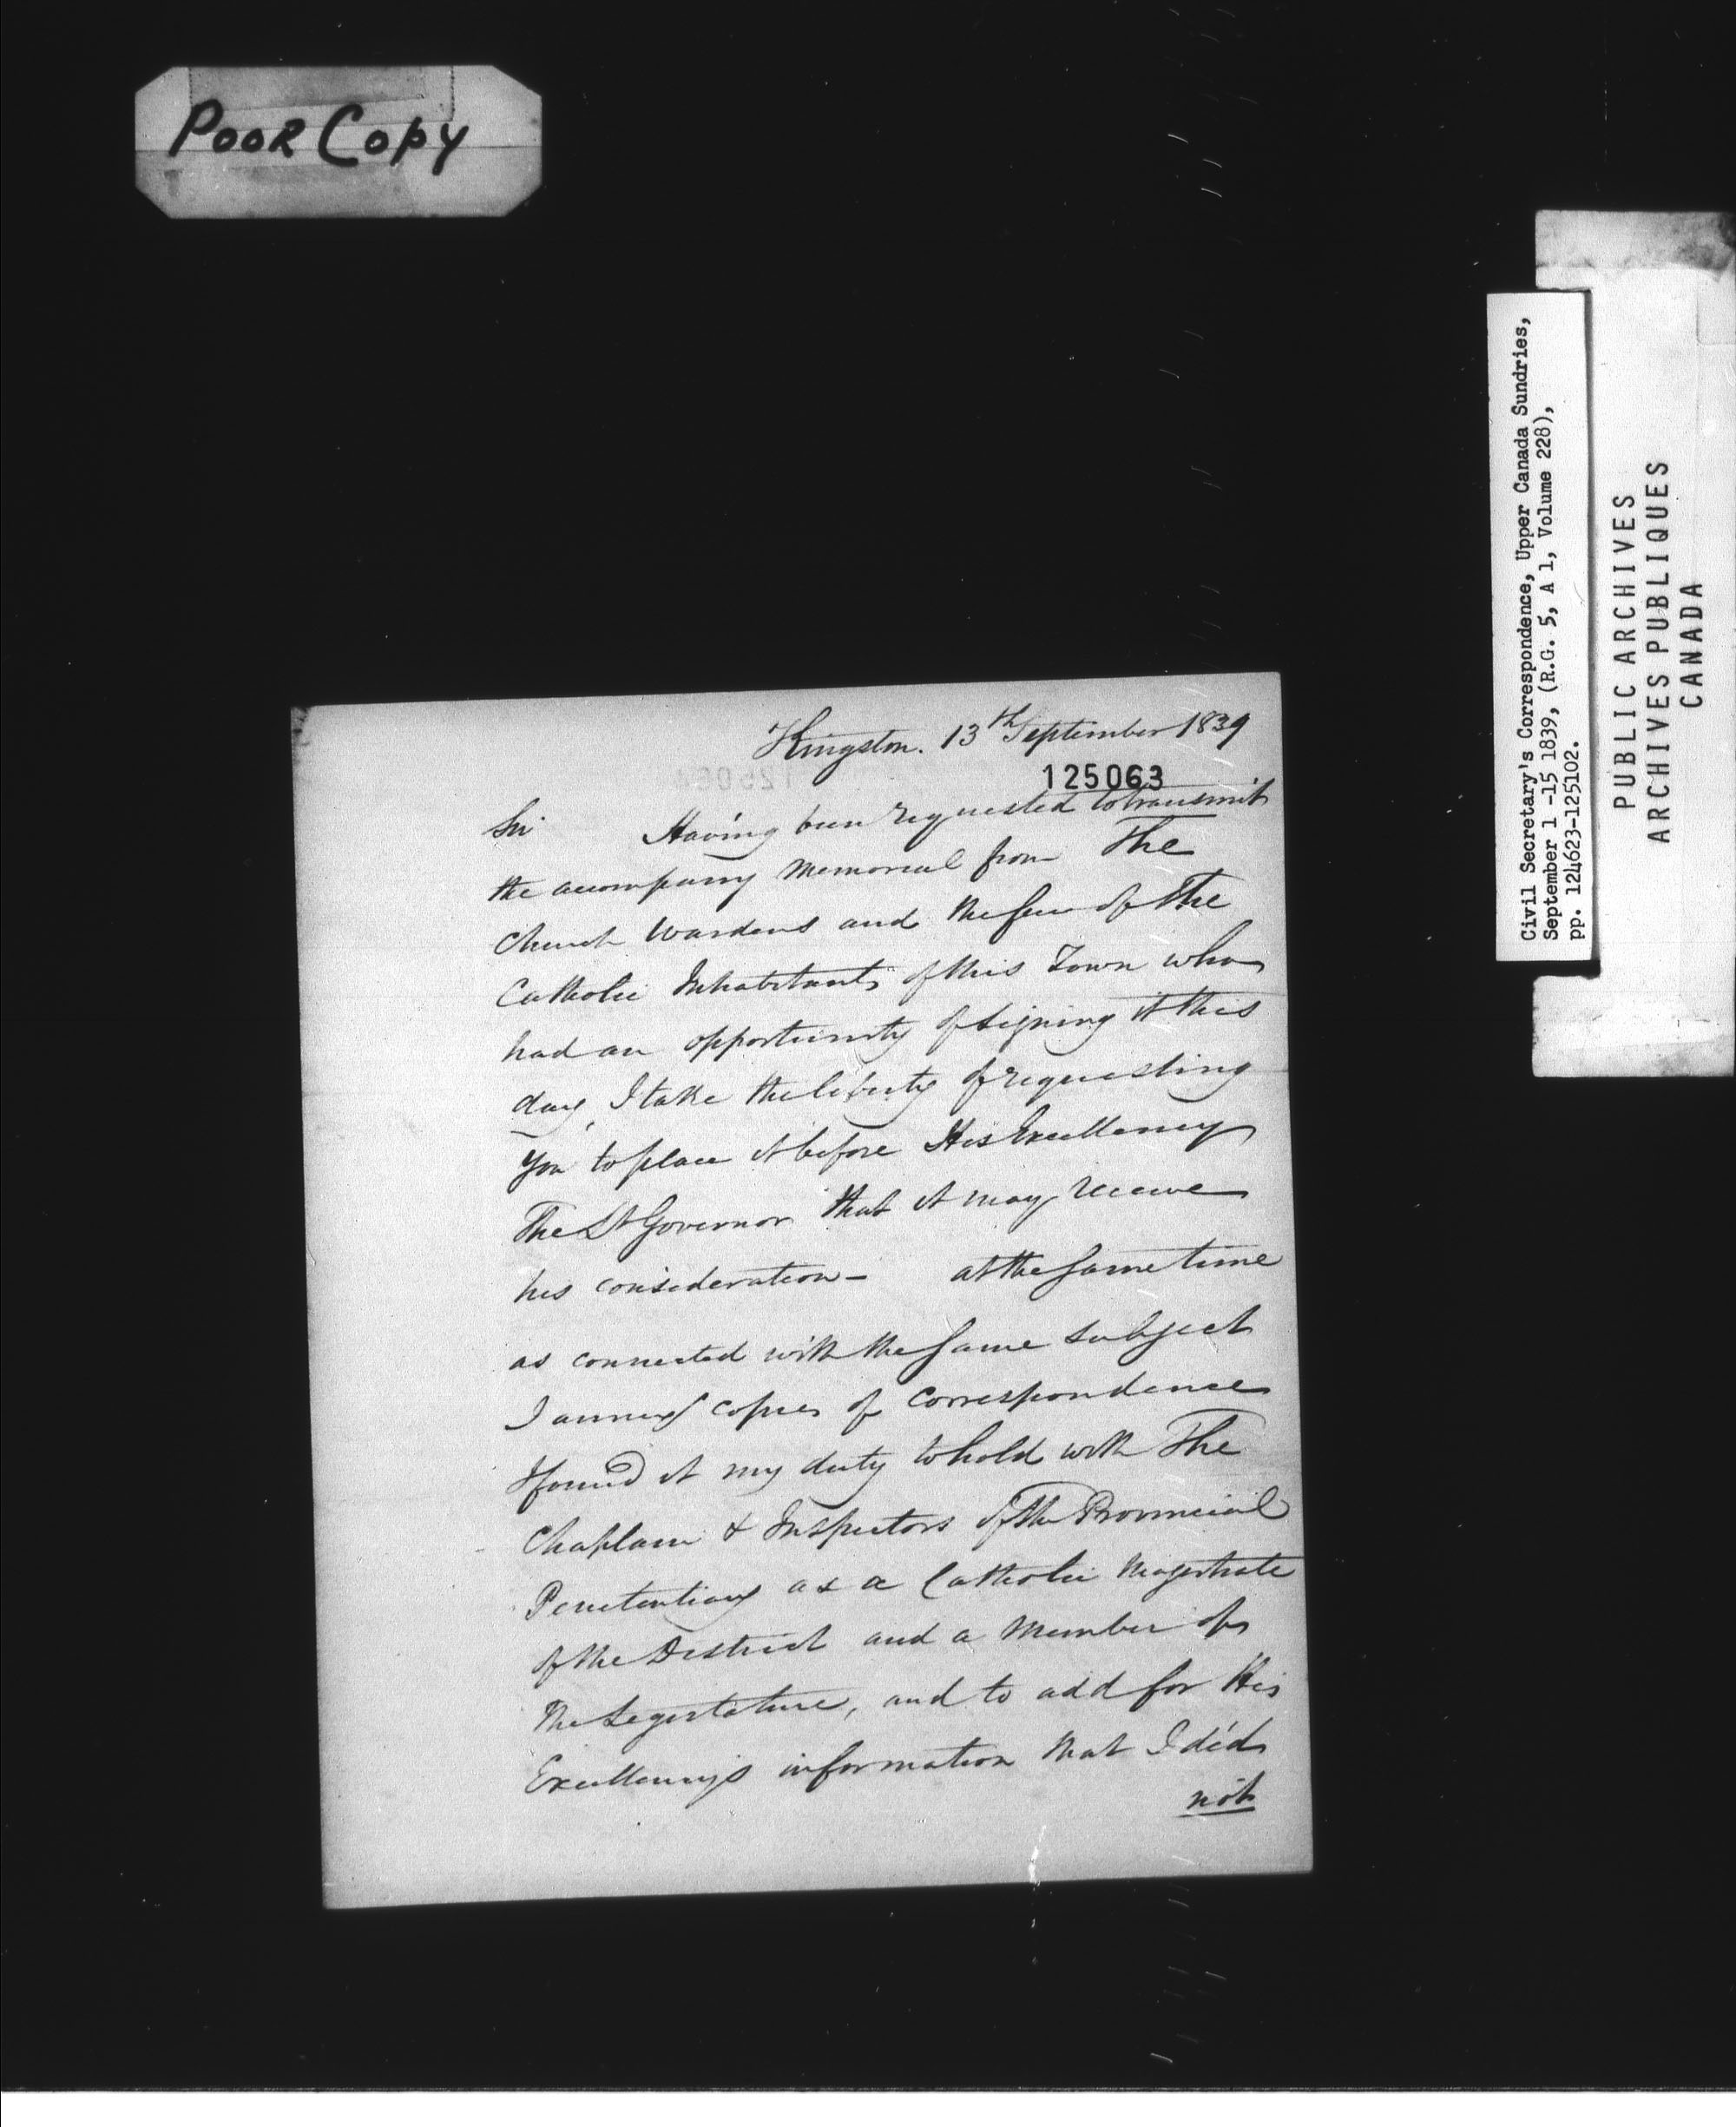 Poor Copy
Kingston. 13th September 1839
125063
Sir Having been requested to transmit
the accompany Memorial from The
Church Wardens and the few of The
Catholic Inhabitants of this Town who
had an opportunity of signing it this
day, I take the liberty of requesting
you to place it before His Excellency
The Lt Governor that it may receive
his consideration — at the same time
as connected with the same subject
I annex copies of correspondence
I found it my duty to hold with The
Chaplain & Inspectors of the Provincial
Penetentiary as a Catholic Magistrate
of the District and a Member of
the Legislature, and to add for His
Excellency's information that I did
not
Civil Secretary's Correspondence, Upper Canada Sundries,
September 1 -15 1839, (R.G. 5, A 1, Volume 228),
pp. 124623-125102.
PUBLIC ARCHIVES
ARCHIVES PUBLIQUES
CANADA